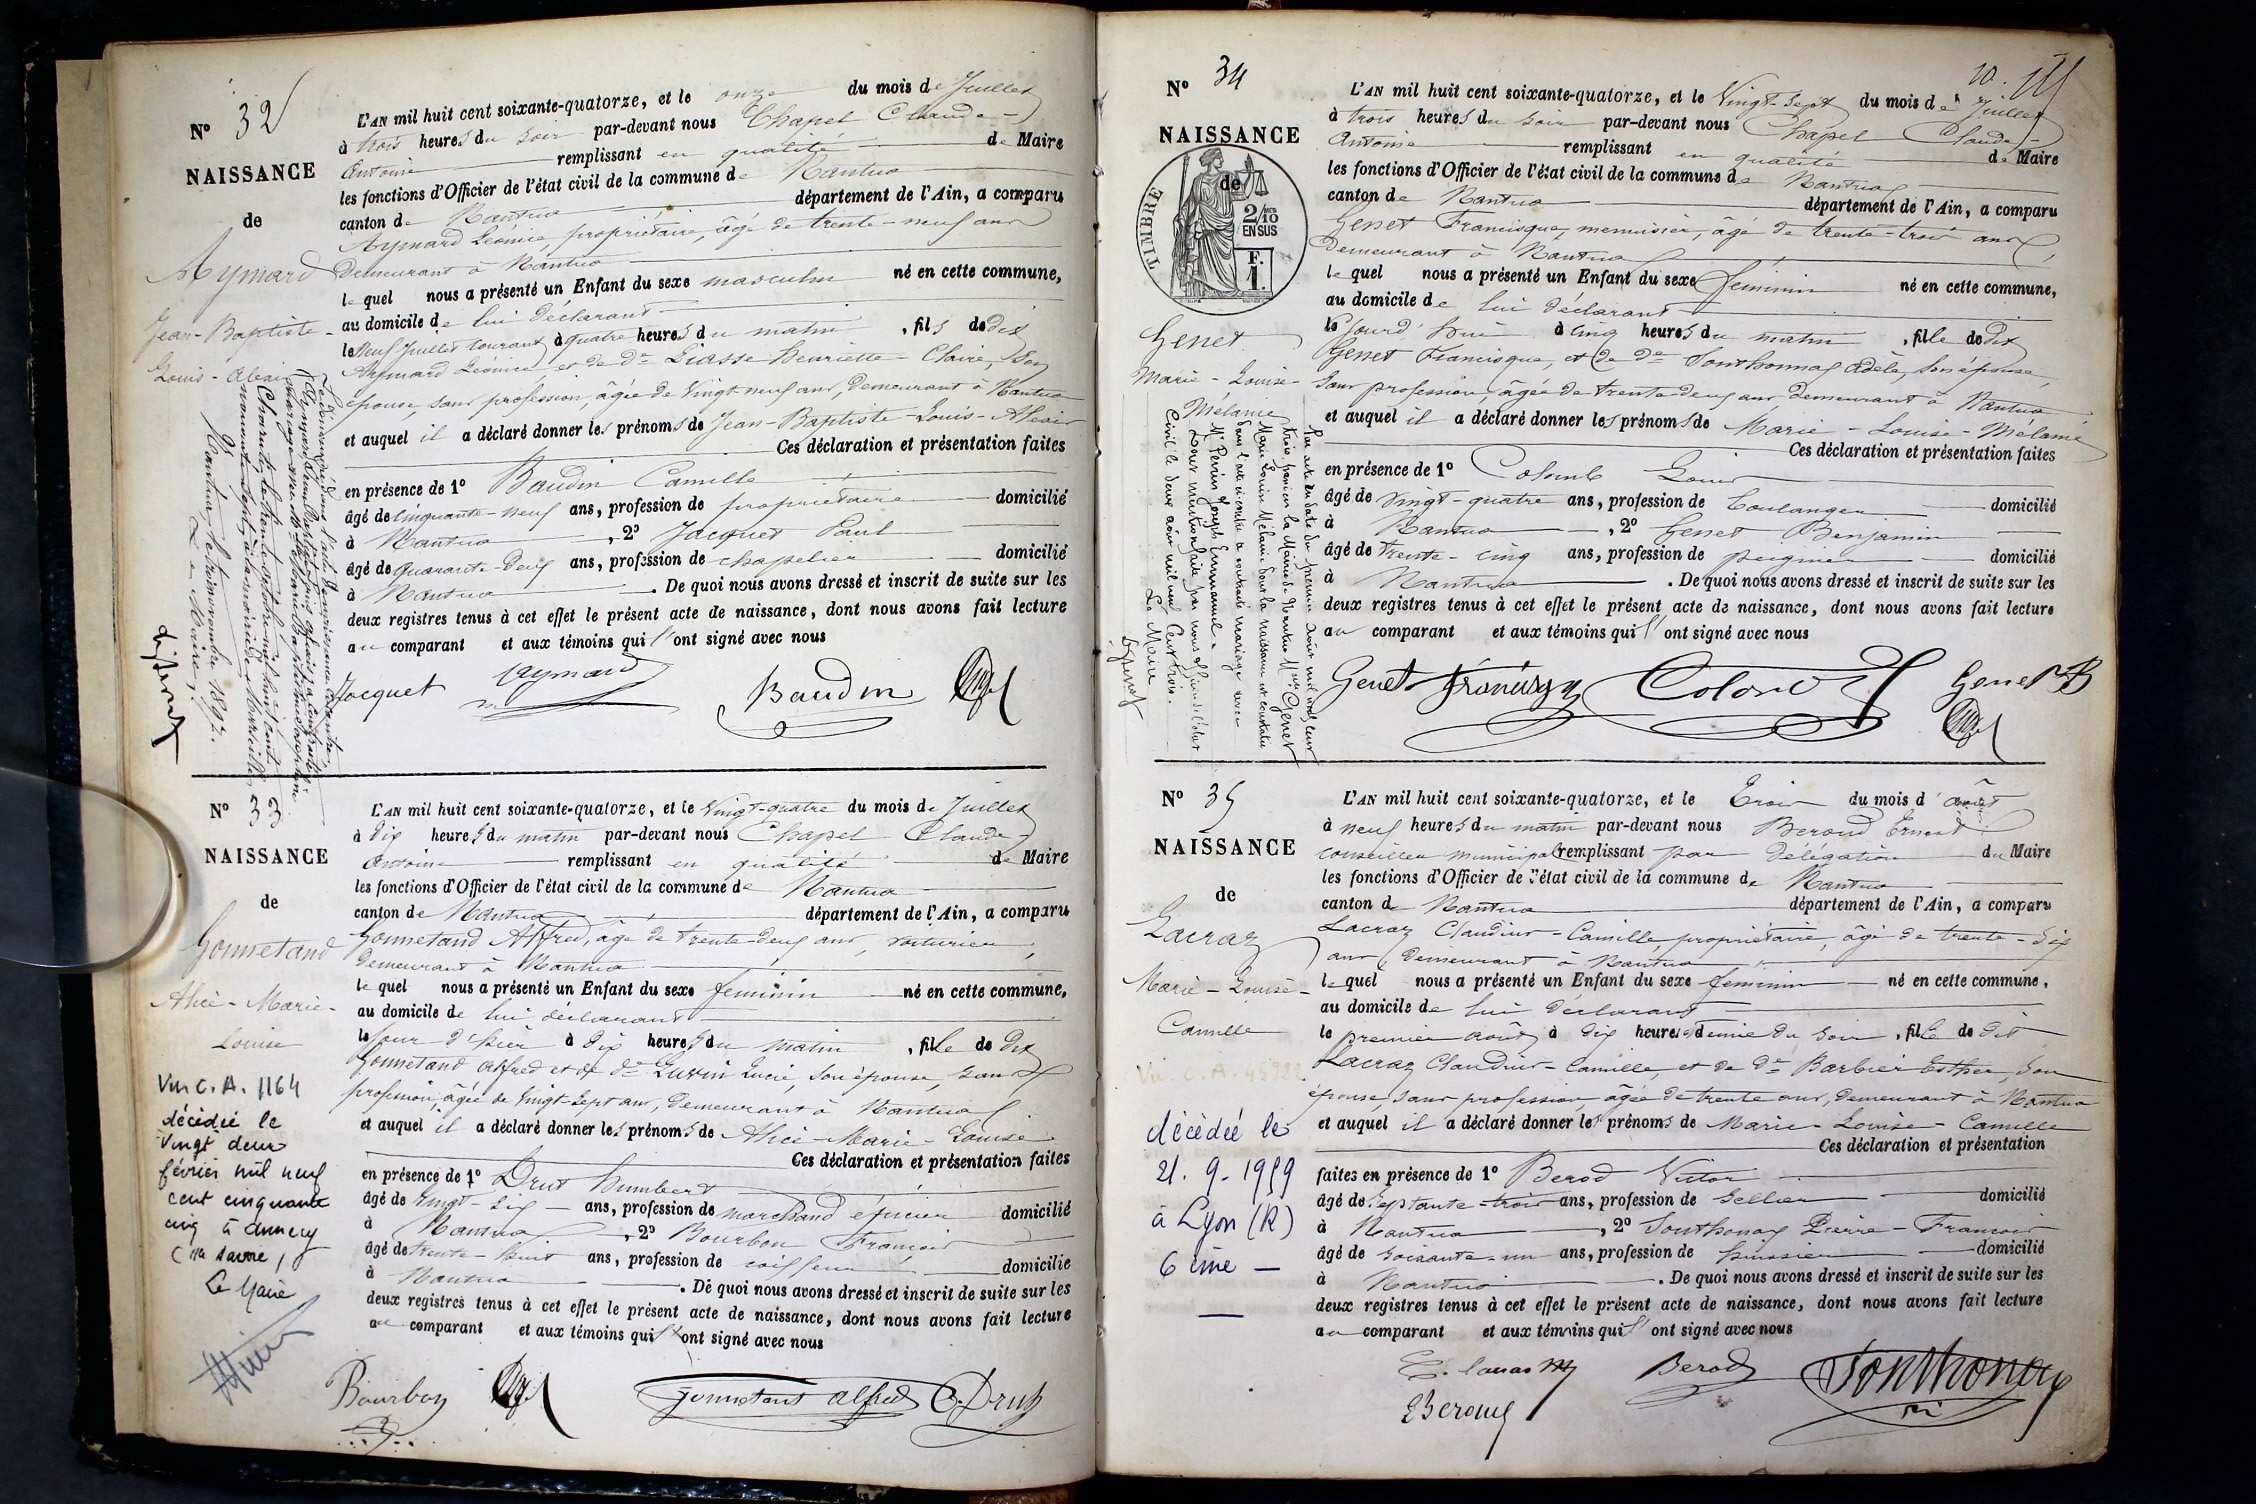 Nº 32
NAISSANCE
de
Aymard
Jean-Baptiste-
Louis-Alexis
L'AN mil huit cent soixante-quatorze, et le onze du mois de Juillet
à trois heures du soir par-devant nous Chapel Claude-
Antoine remplissant en qualité de Maire
les fonctions d'Officier de l'état civil de la commune de Nantua
canton de Nantua département de l'Ain, a comparu
Aymard Léonice, propriétaire, âgé de trente-neuf ans
demeurant à Nantua
lequel nous a présenté un Enfant du sexe masculin né en cette commune,
au domicile de lui déclarant
le neuf Juillet courant à quatre heures du matin, fils de dit
Aymard Léonice et de De Liasse Henriette-Claire, son
épouse, sans profession, âgée de vingt neuf ans, demeurant à Nantua
et auquel il a déclaré donner les prénoms de Jean-Baptiste-Louis-Alexis
Ces déclaration et présentation faites
en présence de 1º Baudin Camille
âgé de cinquante-neuf ans, profession de propriétaire domicilié
à Nantua, 2º Jacquet Paul
âgé de quarante-deux ans, profession de chapelier domicilié
à Nantua. De quoi nous avons dressé et inscrit de suite sur les
deux registres tenus à cet effet le présent acte de naissance, dont nous avons fait lecture
au comparant et aux témoins qui l'ont signé avec nous
Jacquet Aymard Baudin
Nantua, le trois novembre 1892.
Le Maire,
Nº 33
NAISSANCE
de
Gonnetand
Alice-Marie-
Louise
Vu C.A. 1164
décédée le
vingt deux
février mil neuf
cent cinquante
cinq à Annecy
(Hte Savoie)
Le Maire
L'AN mil huit cent soixante-quatorze, et le vingt-quatre du mois de Juillet
à dix heures du matin par-devant nous Chapel Claude-
Antoine remplissant en qualité de Maire
les fonctions d'Officier de l'état civil de la commune de Nantua
canton de Nantua département de l'Ain, a comparu
Gonnetand Alfred, âgé de trente-deux ans, voiturier
demeurant à Nantua
lequel nous a présenté un Enfant du sexe féminin né en cette commune,
au domicile de lui déclarant
le jour d'hier à dix heures du matin, fille de dit
Gonnetand Alfred et de De Luxin Lucie, son épouse, sans
profession, âgée de vingt-sept ans, demeurant à Nantua
et auquel il a déclaré donner les prénoms de Alice-Marie-Louise
Ces déclaration et présentation faites
en présence de 1º Drut Humbert
âgé de vingt-six ans, profession de marchand épicier domicilié
à Nantua, 2º Bourbon François
âgé de trente-huit ans, profession de coiffeur domicilié
à Nantua. De quoi nous avons dressé et inscrit de suite sur les
deux registres tenus à cet effet le présent acte de naissance, dont nous avons fait lecture
au comparant et aux témoins qui l'ont signé avec nous
Bourbon Gonnetant alfred C. Drut
10.
Nº 34
NAISSANCE
de
TIMBRE
2/10
EN SUS
F.
1.
Genet
Marie-Louise-
Mélanie
L'AN mil huit cent soixante-quatorze, et le vingt-sept du mois de Juillet
à trois heures du soir par-devant nous Chapel Claude-
Antoine remplissant en qualité de Maire
les fonctions d'Officier de l'état civil de la commune de Nantua
canton de Nantua département de l'Ain, a comparu
Genet Francisque, menuisier, âgé de trente-trois ans
demeurant à Nantua
lequel nous a présenté un Enfant du sexe féminin né en cette commune,
au domicile de lui déclarant
le Jourd'hui à cinq heures du matin, fille de dit
Genet Francisque, et de De Sonthonnax Adèle, son épouse,
sans profession, âgée de trente deux ans demeurant à Nantua
et auquel il a déclaré donner les prénoms de Marie-Louise-Mélanie
Ces déclaration et présentation faites
en présence de 1º Colomb Louis
âgé de vingt-quatre ans, profession de boulanger domicilié
à Nantua, 2º Genet Benjamin
âgé de trente-cinq ans, profession de peignier domicilié
à Nantua. De quoi nous avons dressé et inscrit de suite sur les
deux registres tenus à cet effet le présent acte de naissance, dont nous avons fait lecture
au comparant et aux témoins qui l'ont signé avec nous
Genet francisq Colomb Genet B
Par acte en date du premier août mil neuf cent
trois passé en la Mairie de Nantua Mlle Genet
Marie Louise Mélanie dont la naissance est constatée
dans l'acte ci-contre a contracté mariage avec
Mr Périn Joseph Emmanuel.
Dont mention faite par nous officier de l'état
civil le deux août mil neuf cent trois.
Le Maire
Nº 35
NAISSANCE
de
Lacraz
Marie-Louise-
Camille
décédée le
21.9.1959
à Lyon (R)
6 ème
L'AN mil huit cent soixante-quatorze, et le trois du mois d'août
à neuf heures du matin par-devant nous Beroud Ernest
conseiller municipal remplissant par délégation du Maire
les fonctions d'Officier de l'état civil de la commune de Nantua
canton de Nantua département de l'Ain, a comparu
Lacraz Claudius-Camille, propriétaire, âgé de trente-six
ans demeurant à Nantua
lequel nous a présenté un Enfant du sexe féminin né en cette commune,
au domicile de lui déclarant
le premier août à dix heures demie du soir, fille de dit
Lacraz Claudius-Camille, et de De Barbier Esther, son
épouse, sans profession, âgée de trente ans, demeurant à Nantua
et auquel il a déclaré donner les prénoms de Marie-Louise-Camille
Ces déclaration et présentation
faites en présence de 1º Berod Victor
âgé de septante-trois ans, profession de sellier domicilié
à Nantua, 2º Sonthonax Pierre-François
âgé de soixante-un ans, profession de huissier domicilié
à Nantua. De quoi nous avons dressé et inscrit de suite sur les
deux registres tenus à cet effet le présent acte de naissance, dont nous avons fait lecture
au comparant et aux témoins qui l'ont signé avec nous
Berod Sonthonax
EBeroud